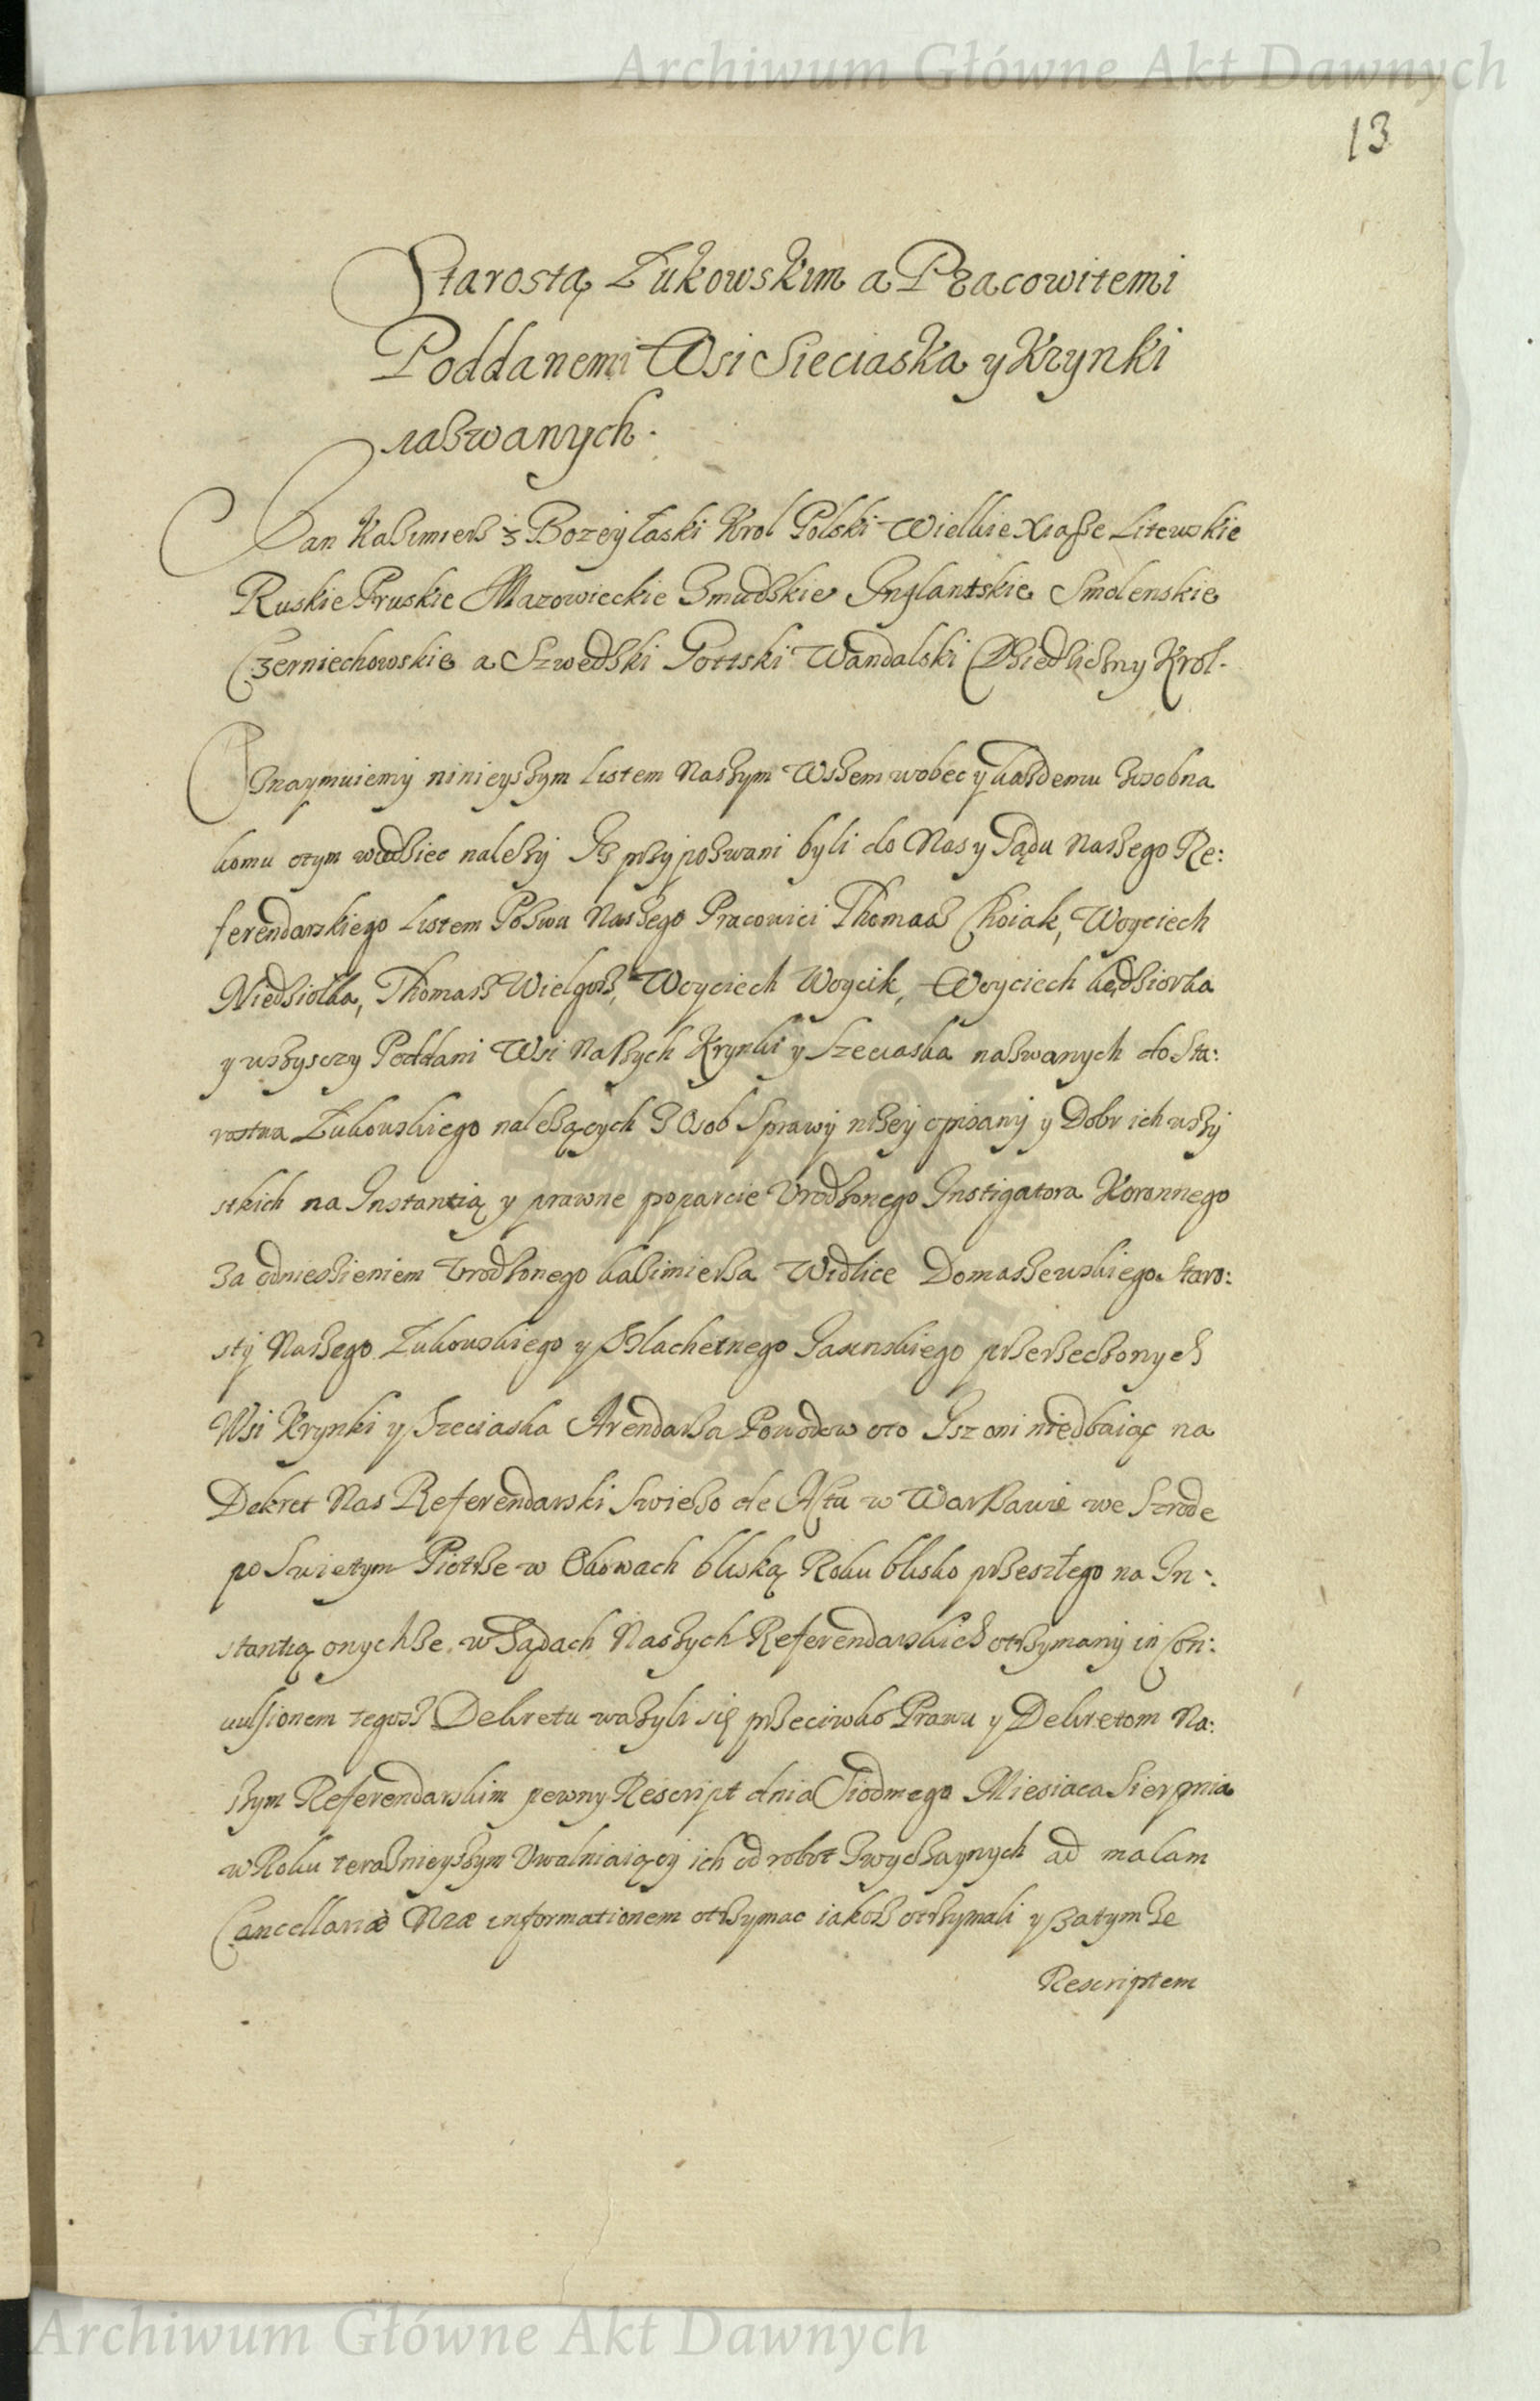 Archiwum Główne Akt Dawnych
13
Starostą Łukowskim a Pracowitemi
Poddanemi Wsi Sieciaska y Krzynki
nazwanych.
Jan Kazimierz z Bozey Łaski Krol Polski Wielkie Xiąże Litewskie
Ruskie Pruskie Mazowieckie Zmudzkie Inflantskie Smolenskie
Czerniechowskie a Szwedzki Gottski Wandalski Dziedziczny Krol.
Oznaymuiemy ninieyszym Listem Naszym Wszem wobec y każdemu zosobna
komu otym wiedziec nalezy Iz przypozwani byli do Nas y Sądu Naszego Re:
ferendarskiego Listem Pozwu Naszego Pracowici Thomasz Choiak, Woyciech
Niedziolka, Thomasz Wielgosz, Woyciech Woycik, Woyciech Kędziorka
y wszyscy Poddani Wsi Naszych Krynki y Szeciaska nazwanych do Sta:
rostwa Łukowskiego nalezących z Osob Sprawy nizey opisany y Dobr ich wszy
stkich na Instantią y prawne poparcie Vrodzonego Instigatora Koronnego
za odniesieniem Vrodzonego Kazimierza Widlice Domaszewskiego Staro:
sty Naszego Łukowskiego y Szlachetnego Gasinskiego przerzeczonych
Wsi Krynki y Szeciaska Arendarza Powodow oto Isz oni niedbaiąc na
Dekret Nas Referendarski Swiezo de Actu w Warszawie we Szrode
po Swietym Piotrze w Okowach bliską Roku blisko przeszłego na In:
stantią onychze w Sądach Naszych Referendarskich otrzymany in Con:
uulsionem tegosz Dekretu wazyli się przeciwko Prawu y Dekretom Na:
szym Referendarskim pewny Rescript dnia Siodmego Miesiaca Sierpnia
w Roku teraznieyszym Vwalniaiący ich od robot zwyczaynych ad malam
Cancellariæ Nræ informationem otrzymac iakosz otrzymali y zatymze
Rescriptem
Archiwum Główne Akt Dawnych